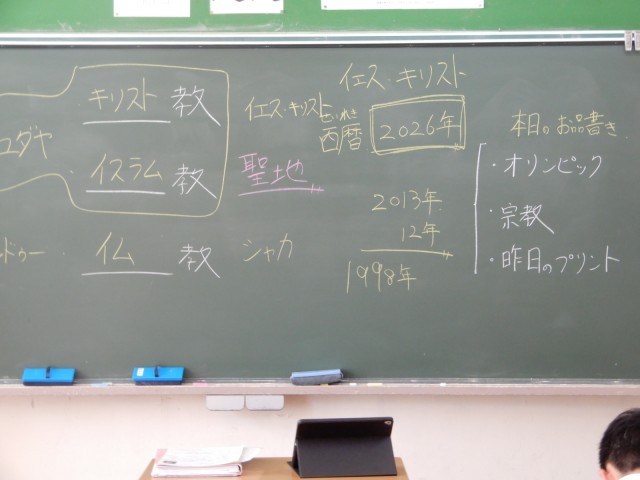 キリスト教
ユダヤ
・イスラム教
ドゥー・仏教
シャカ
聖地
イエス・キリスト
イエス・キリスト
せいれき
西暦
2026年
2013年
12年
1998年
本日のお品書き
・オリンピック
・宗教
・昨日のプリント